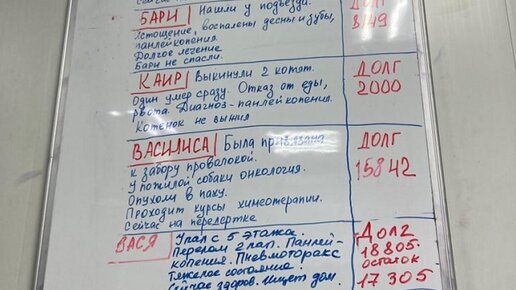 БАРИ Нашли у подъезда. ДОЛГ
Истощение, воспалены десны и зубы,
панлейкопения. 3149
Долгое лечение
Бари не спасли.
КАИР Выкинули 2 котят. ДОЛГ
Один умер сразу. Отказ от еды, 2000
рвота. Диагноз - панлейкопения.
Котенок не выжил
ВАСИЛИСА Была привязана ДОЛГ
к забору проволокой. 15842
У пожилой собаки онкология.
Опухоли в паху.
Проходит курсы химиотерапии.
Сейчас на передержке
ВАСЯ Упал с 5 этажа. ДОЛГ
Перелом 2 лап. Панлей- 18805.
копения. Пневмоторакс остаток
Тяжелое состояние. 17305
Сейчас здоров. Ищет дом.